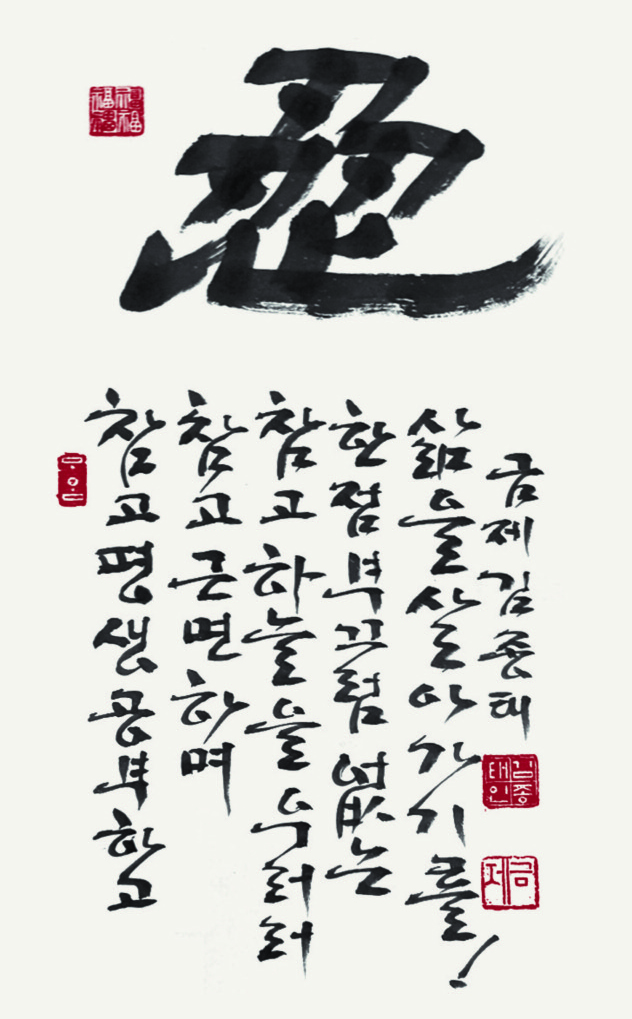 참고 평생 공부하고
참고 근면하며
참고 하늘을 우러러
한 점 부끄럼 없는
삶을 살아가기를!
금제 김종태
김종태인
금제